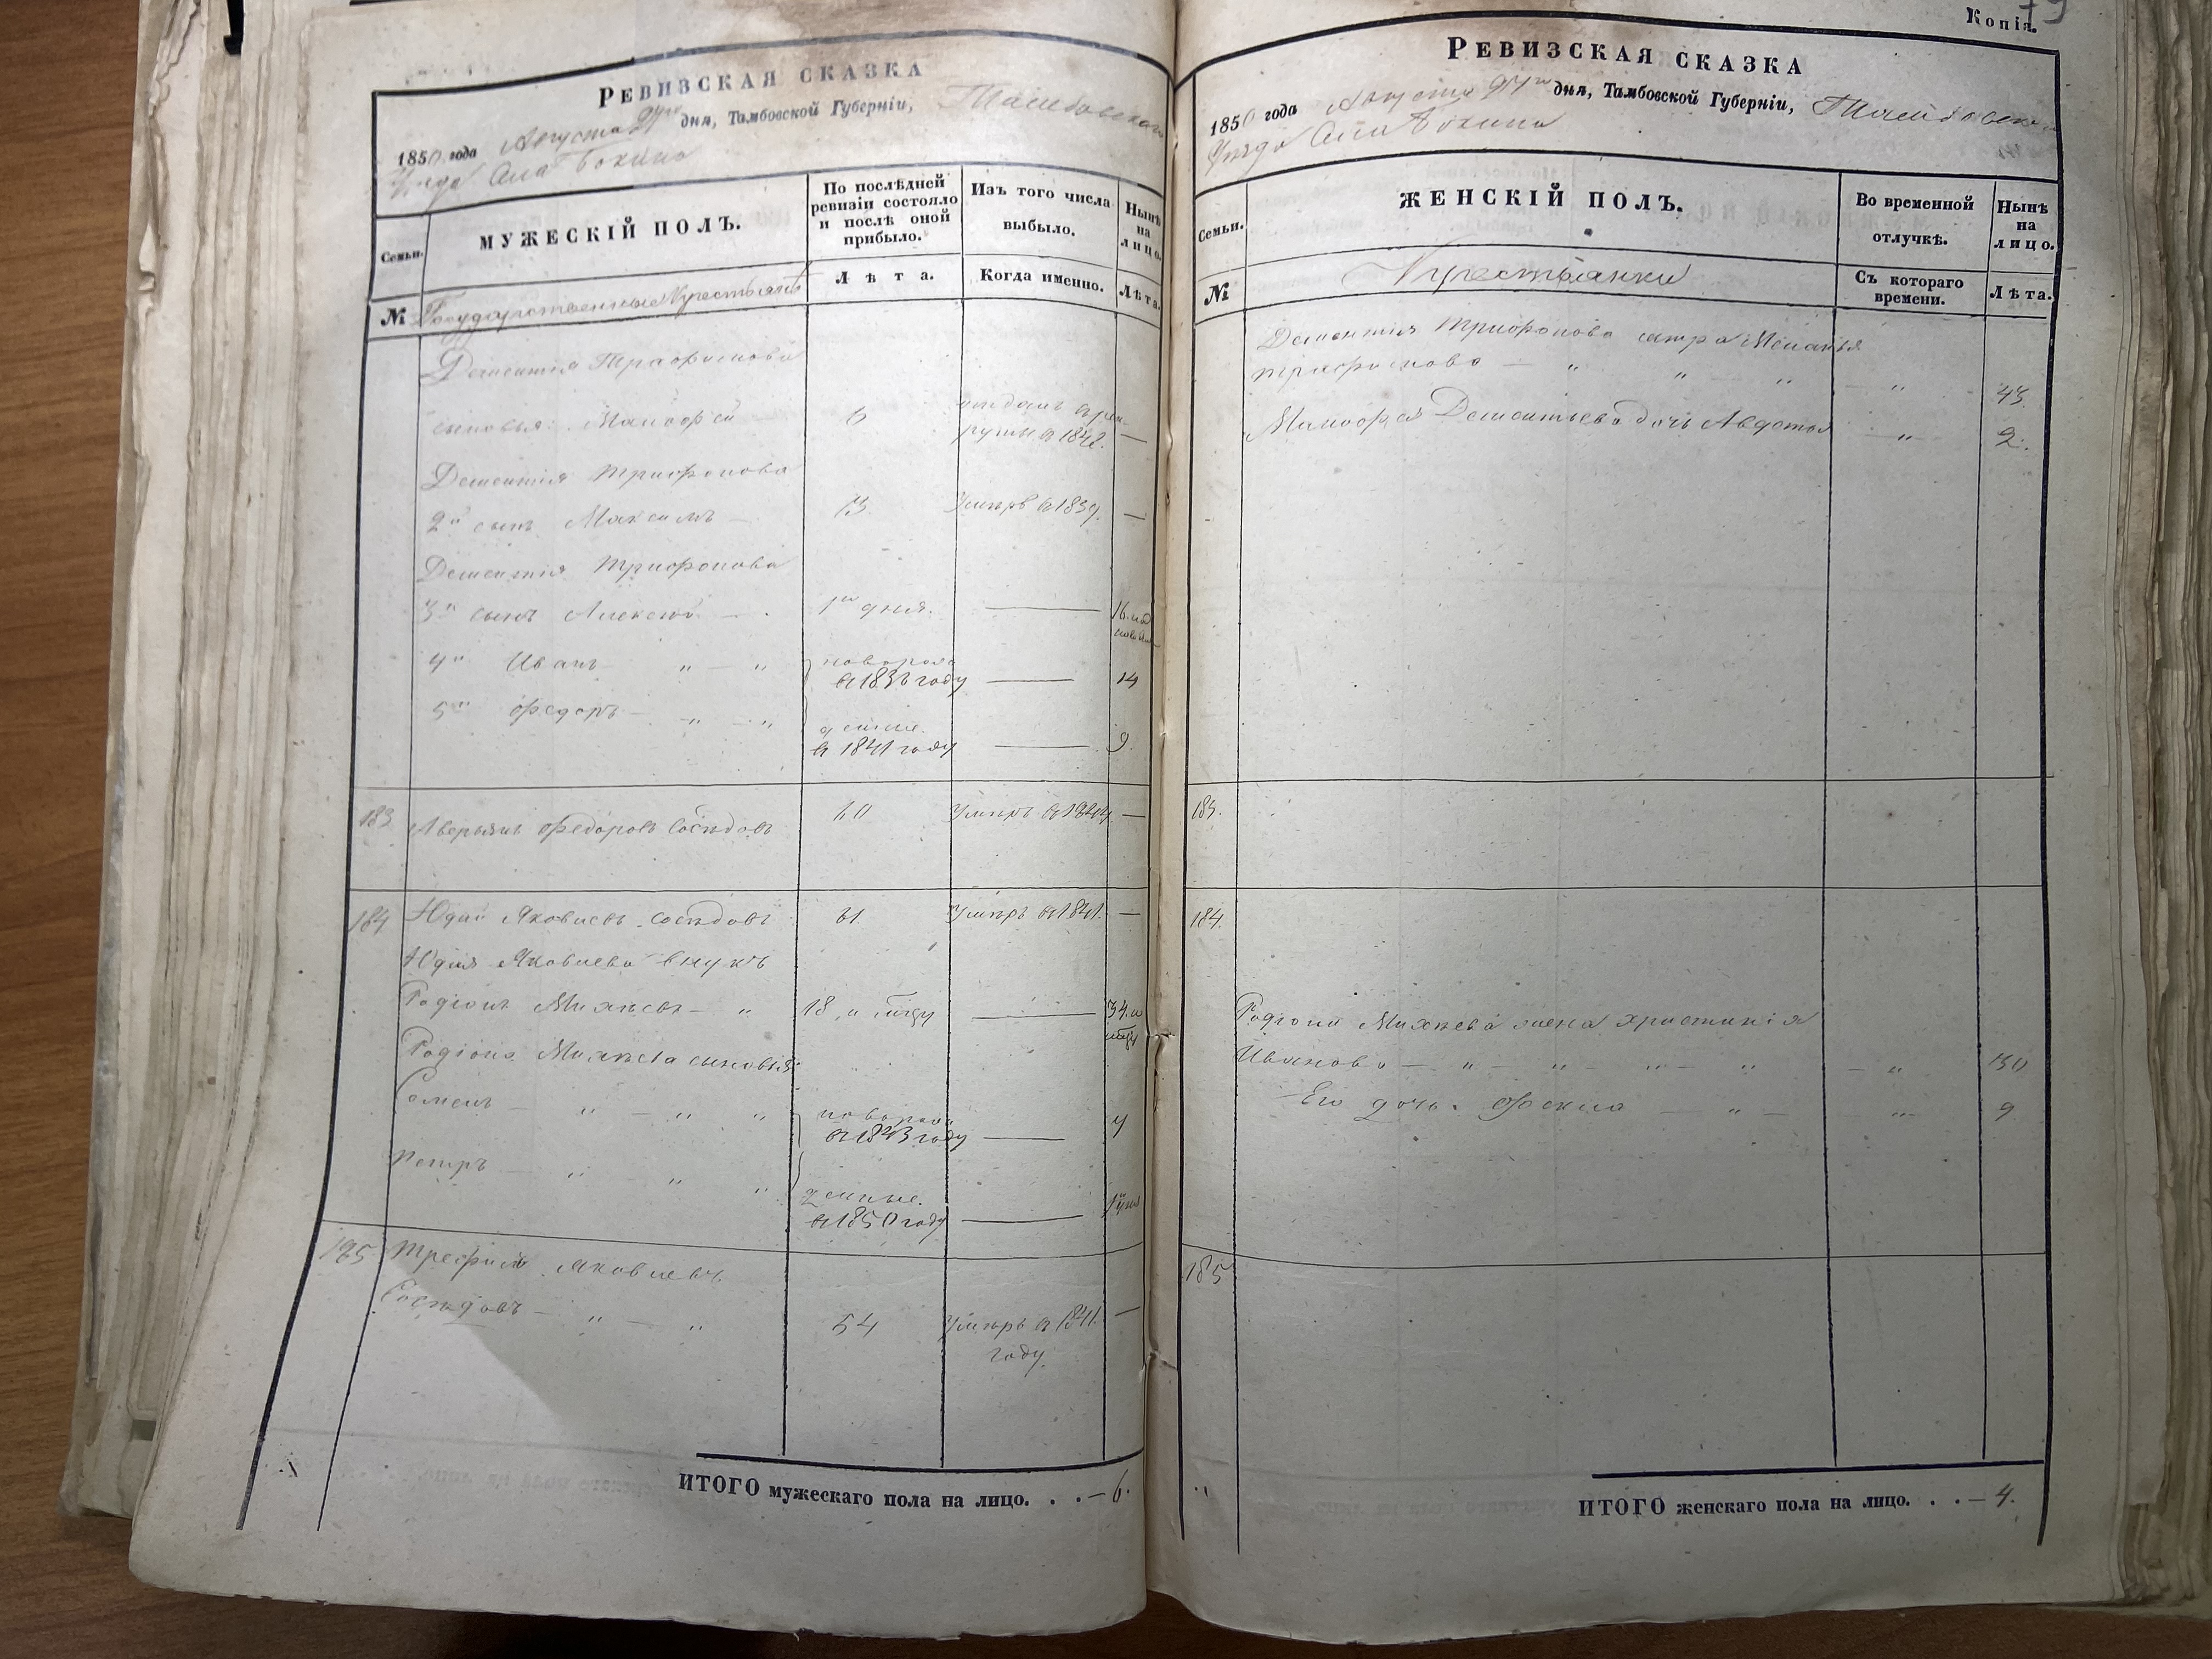 РЕВИЗСКАЯ СКАЗКА
1850 года Августа 24го дня, Тамбовской Губерніи, Тамбовскаго
Уѣзда Села Бокина
Семьи.
МУЖЕСКІЙ ПОЛЪ.
По послѣдней ревизіи состояло и послѣ оной прибыло.
Изъ того числа выбыло.
Нынѣ на лицо.
№ Государственные Крестьяне
Лѣта.
Когда именно.
Лѣта.
Дементія Трифонова
сыновья: 6 отданъ въ рекруты въ 1842. —
Дементія Трифонова
2й сынъ Максимъ — 13. Умеръ въ 1839. —
Дементія Трифонова
3й сынъ Алексѣй — 1го дня. — 16. и пол
4й Иванъ " — " новорож
въ 1836 году — 14
5й Федоръ — " — " денные.
въ 1841 году — 9.
183 Аверьянъ Федоровъ Сосѣдовъ 60 Умеръ въ 1844. —
184 Юдай Яковлевъ Сосѣдовъ 61 Умеръ въ 1841. —
Яковлева внукъ
Родіонъ Михѣевъ — " 18 — 34. и
Родіона Михѣева сыновья:
Семенъ — " — " " новорож
въ 1843 году — 7
Петръ — " " " денные.
въ 1850 году —
185 Трефилъ Яковлевъ
Сосѣдовъ — " — " 54 Умеръ въ 1841. —
году.
ИТОГО мужескаго пола на лицо. . . — 6.
Копія.
79
РЕВИЗСКАЯ СКАЗКА
1850 года Августа 24го дня, Тамбовской Губерніи, Тамбовскаго
Уѣзда Села Бокина
Семьи.
ЖЕНСКІЙ ПОЛЪ.
Во временной отлучкѣ.
Нынѣ на лицо.
№
Крестьянки
Съ котораго времени.
Лѣта.
Дементія Трифонова сестра Меланья
Трифонова — " " " — " 43.
Дементьева дочь Авдотья — " 2.
183.
184.
Родіона Михѣева жена Христинія
Иванова — " — " — " — " — " 30
Его дочь: Фекла — " — " 9
185
ИТОГО женскаго пола на лицо. . . — 4.